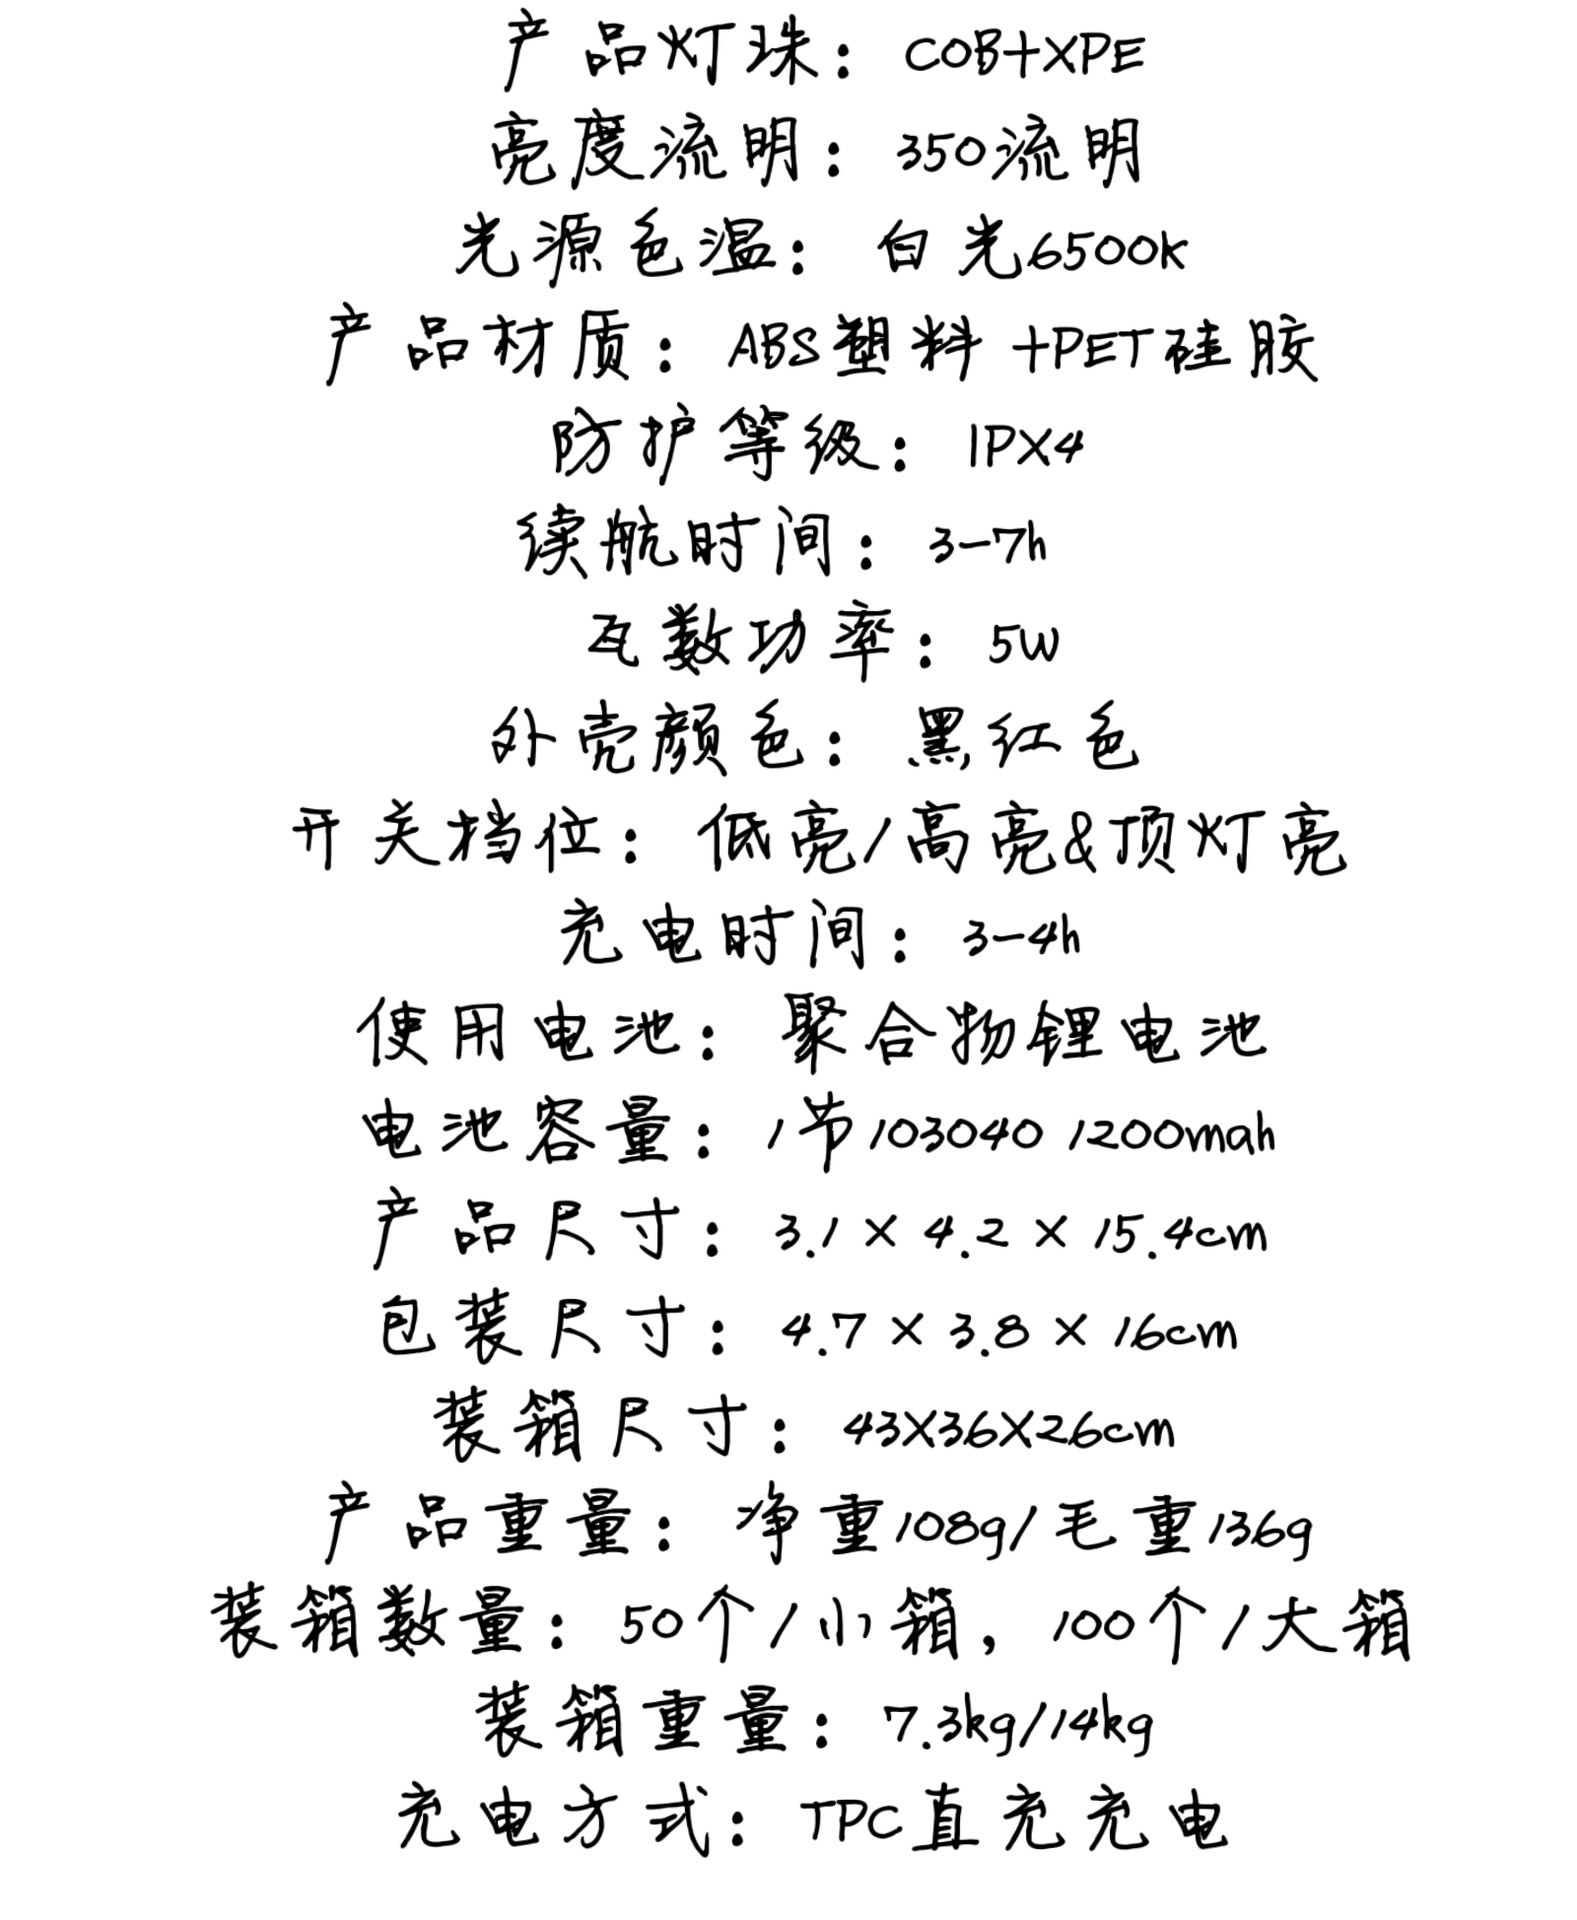 产品灯珠：COB+XPE
亮度流明：350流明
光源色温：白光6500k
产品材质：ABS塑料+PET硅胶
防护等级：IPX4
续航时间：3-7h
瓦数功率：5W
外壳颜色：黑红色
开关档位：低亮/高亮&顶灯亮
充电时间：3-4h
使用电池：聚合物锂电池
电池容量：1节103040 1200mah
产品尺寸：3.1 × 4.2 × 15.4cm
包装尺寸：4.7 × 3.8 × 16cm
装箱尺寸：43X36X26cm
产品重量：净重108g/毛重136g
装箱数量：50个/小箱，100个/大箱
装箱重量：7.3kg/14kg
充电方式：TPC直充充电